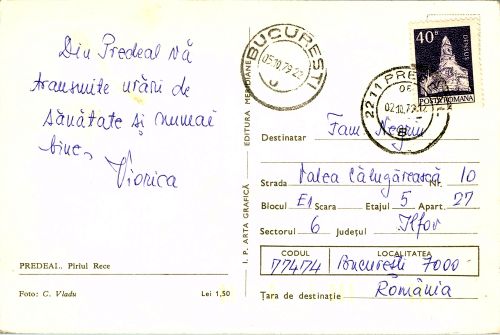 Din Predeal vă
transmite urări de
sănătate și numai
bine,
Viorica
PREDEAL. Pîrîul Rece
Foto: G. Vladu
Lei 1,50
I. P. ARTA GRAFICĂ
EDITURA MERIDIANE
BUCUREȘTI
05.10.79.22
40B
DENSUȘ
POSTA ROMANA
2211 PRE
02.10.79.12
Destinatar Fam Negru
Strada Valea Călugărească Nr. 10
Blocul E1 Scara Etajul 5 Apart. 27
Sectorul 6 Județul Ilfov
CODUL LOCALITATEA
77474 București 7000
România
Țara de destinație